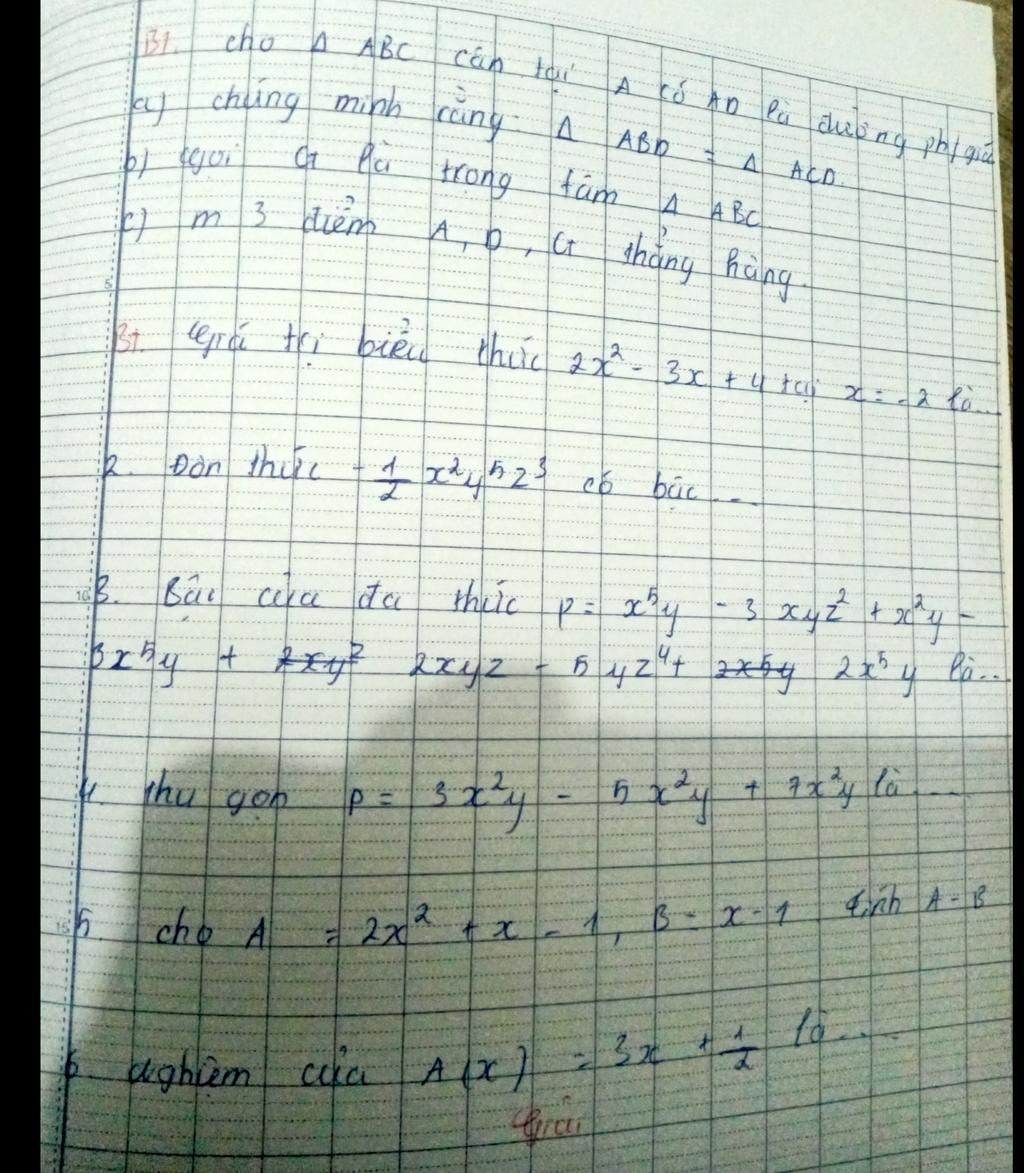 B1. cho Δ ABC cân tại A có AD là đường ph/giác
a) chứng minh rằng Δ ABD = Δ ACD.
b) Gọi G là trọng tâm Δ ABC
c) m 3 điểm A, D, G thẳng hàng.
B1. Giá trị biểu thức 2x² - 3x + 4 tại x = -2 là...
2. Đơn thức - 1/2 x²y⁵z³ có bậc ...
3. Bậc của đa thức P = x⁵y - 3 xyz² + x²y -
3x⁵y + 2xyz - 5 yz⁴ + 2x⁵y là..
4. Thu gọn P = 3x²y - 5x²y + 7x²y là ....
5. cho A = 2x² + x - 1, B = x - 1 tính A - B
6 nghiệm của A(x) = 3x + 1/2 là ....
Giải